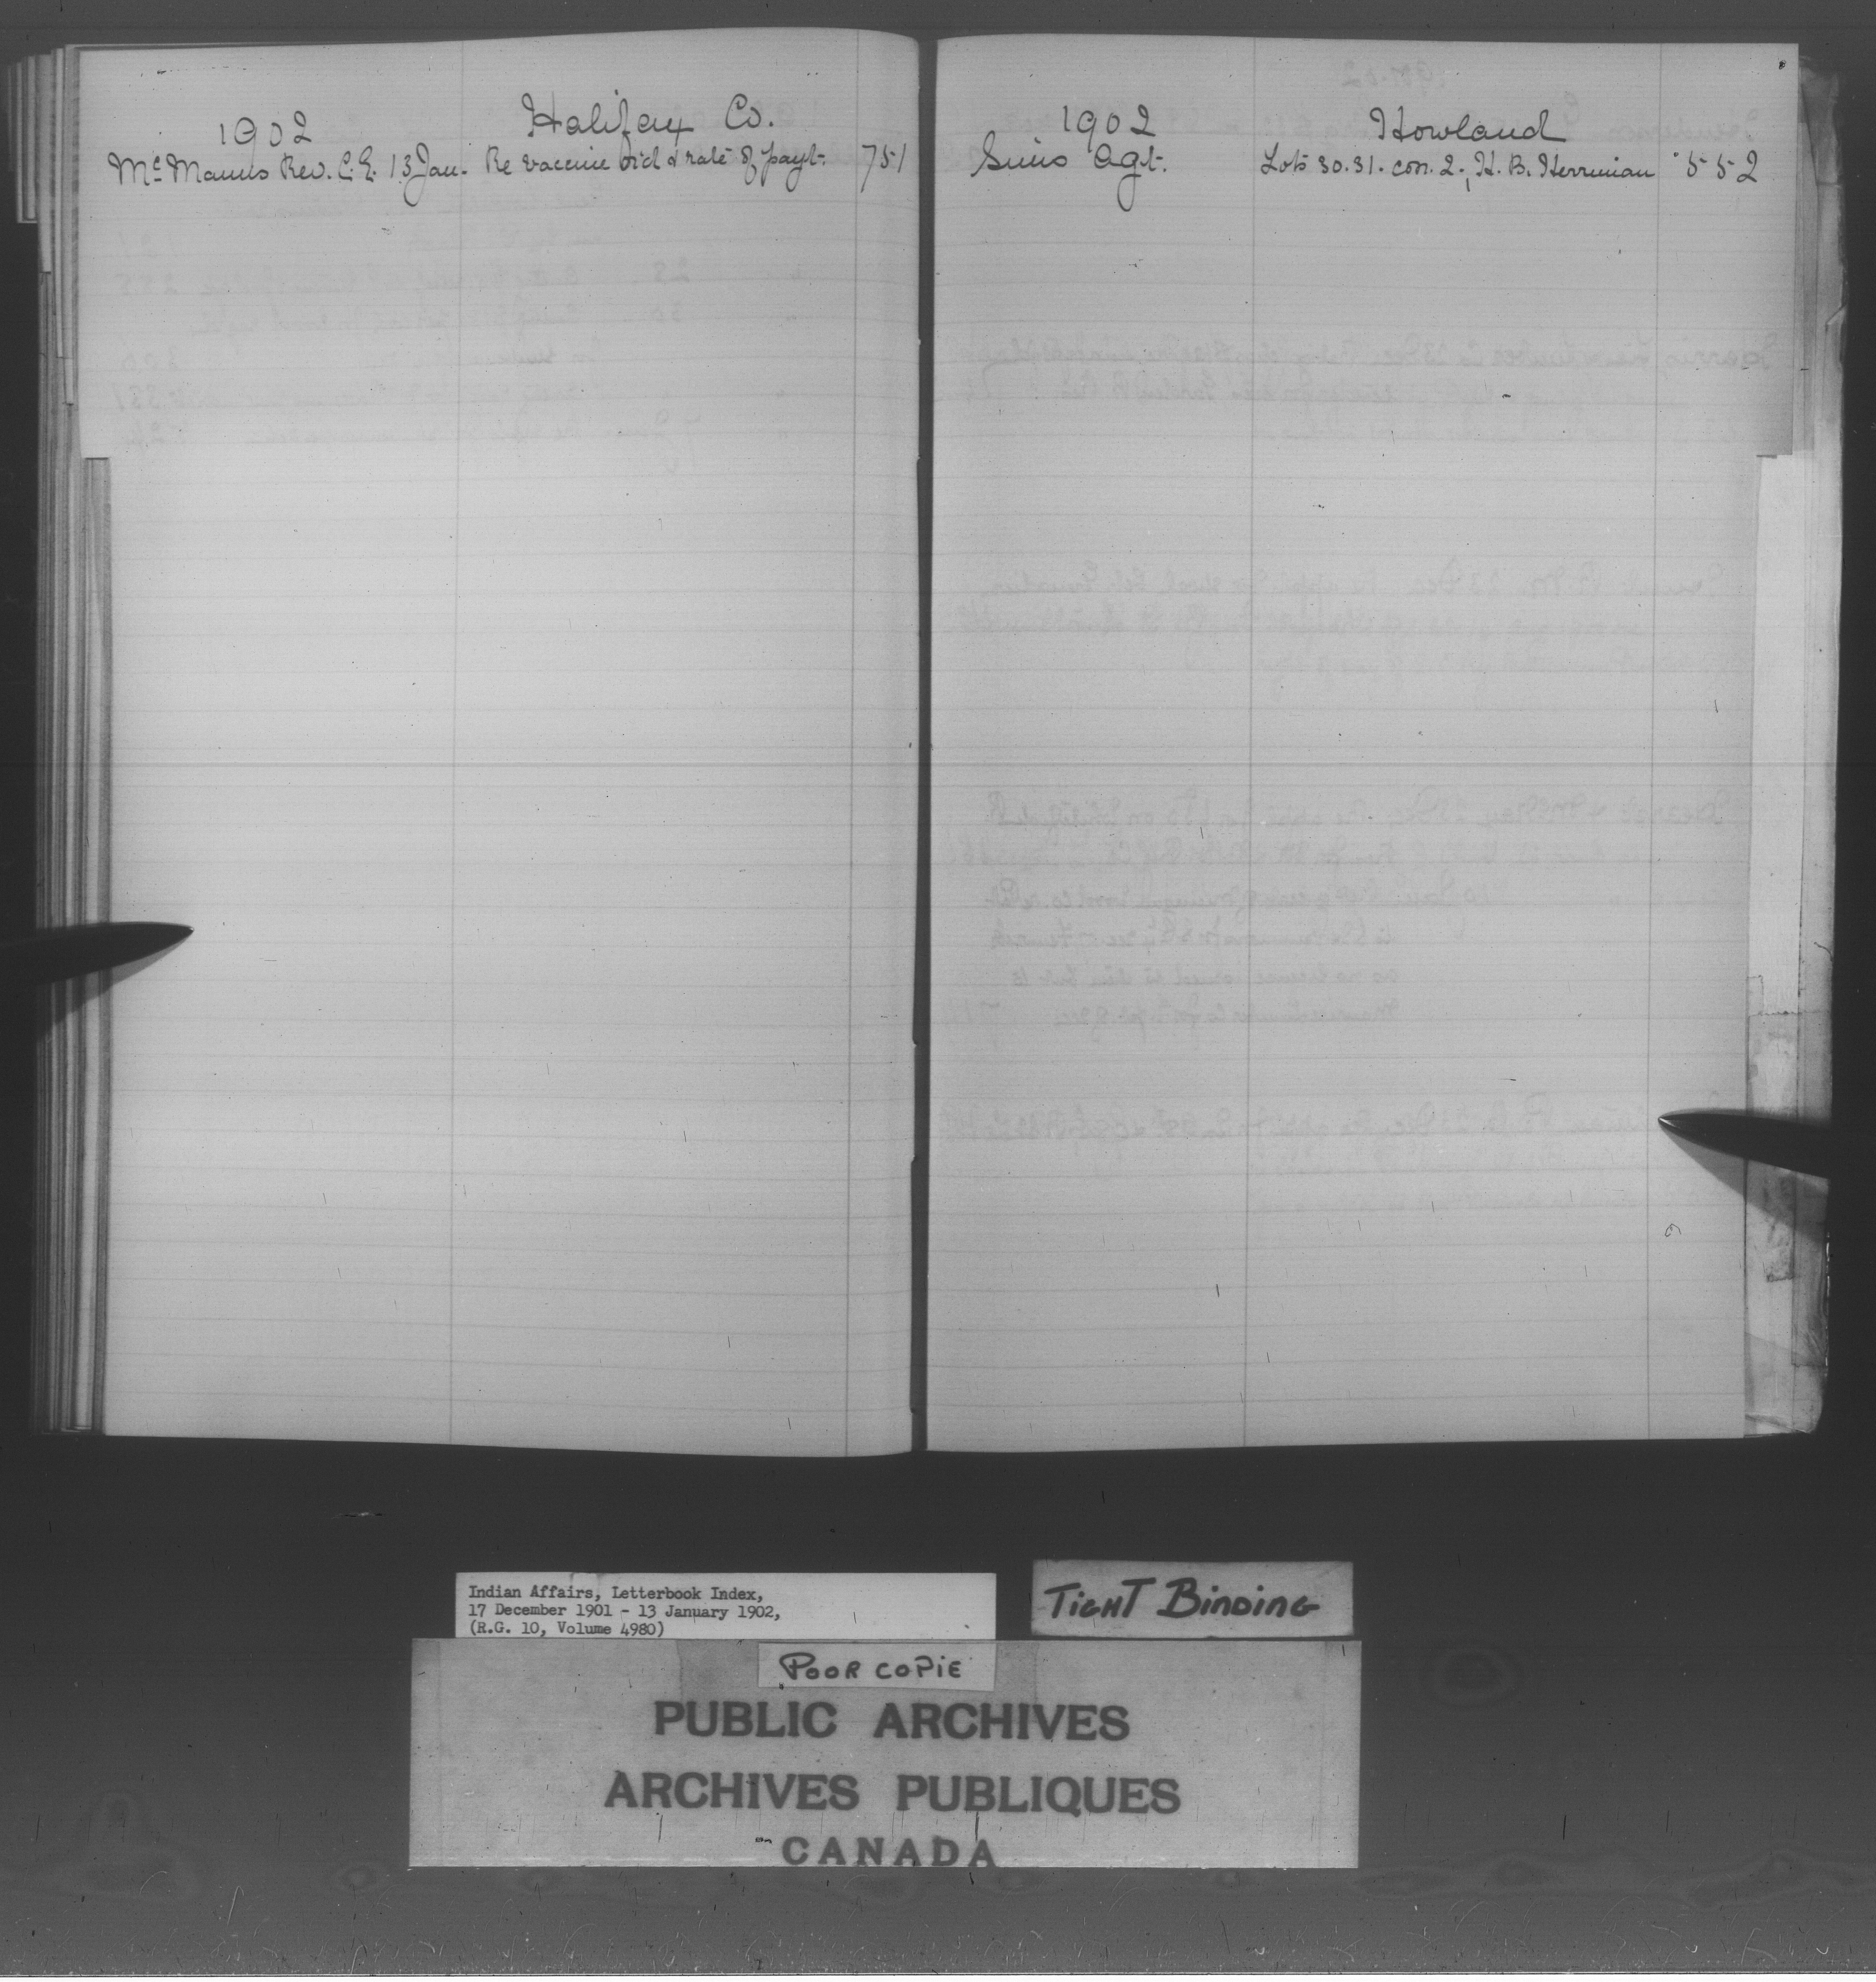 1902 Halifax Co.
McManus Rev. C.E. 13 Jan. Re vaccine ord & rate of payt. 751
1902 Howland
Sims Agt. Lots 30.31. con. 2., H. B. Herriman 552
Indian Affairs, Letterbook Index,
17 December 1901 - 13 January 1902,
(R.G. 10, Volume 4980)
TIGHT BINDING
POOR COPIE
PUBLIC ARCHIVES
ARCHIVES PUBLIQUES
CANADA